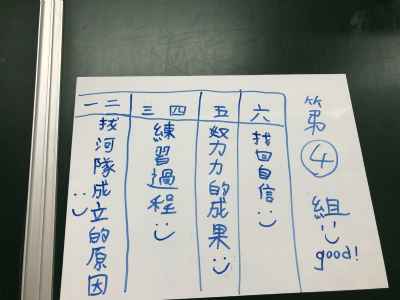 一 二
找河隊成立的原因
三 四
練習過程
五
努力的成果
六
找回自信
第④組
good!